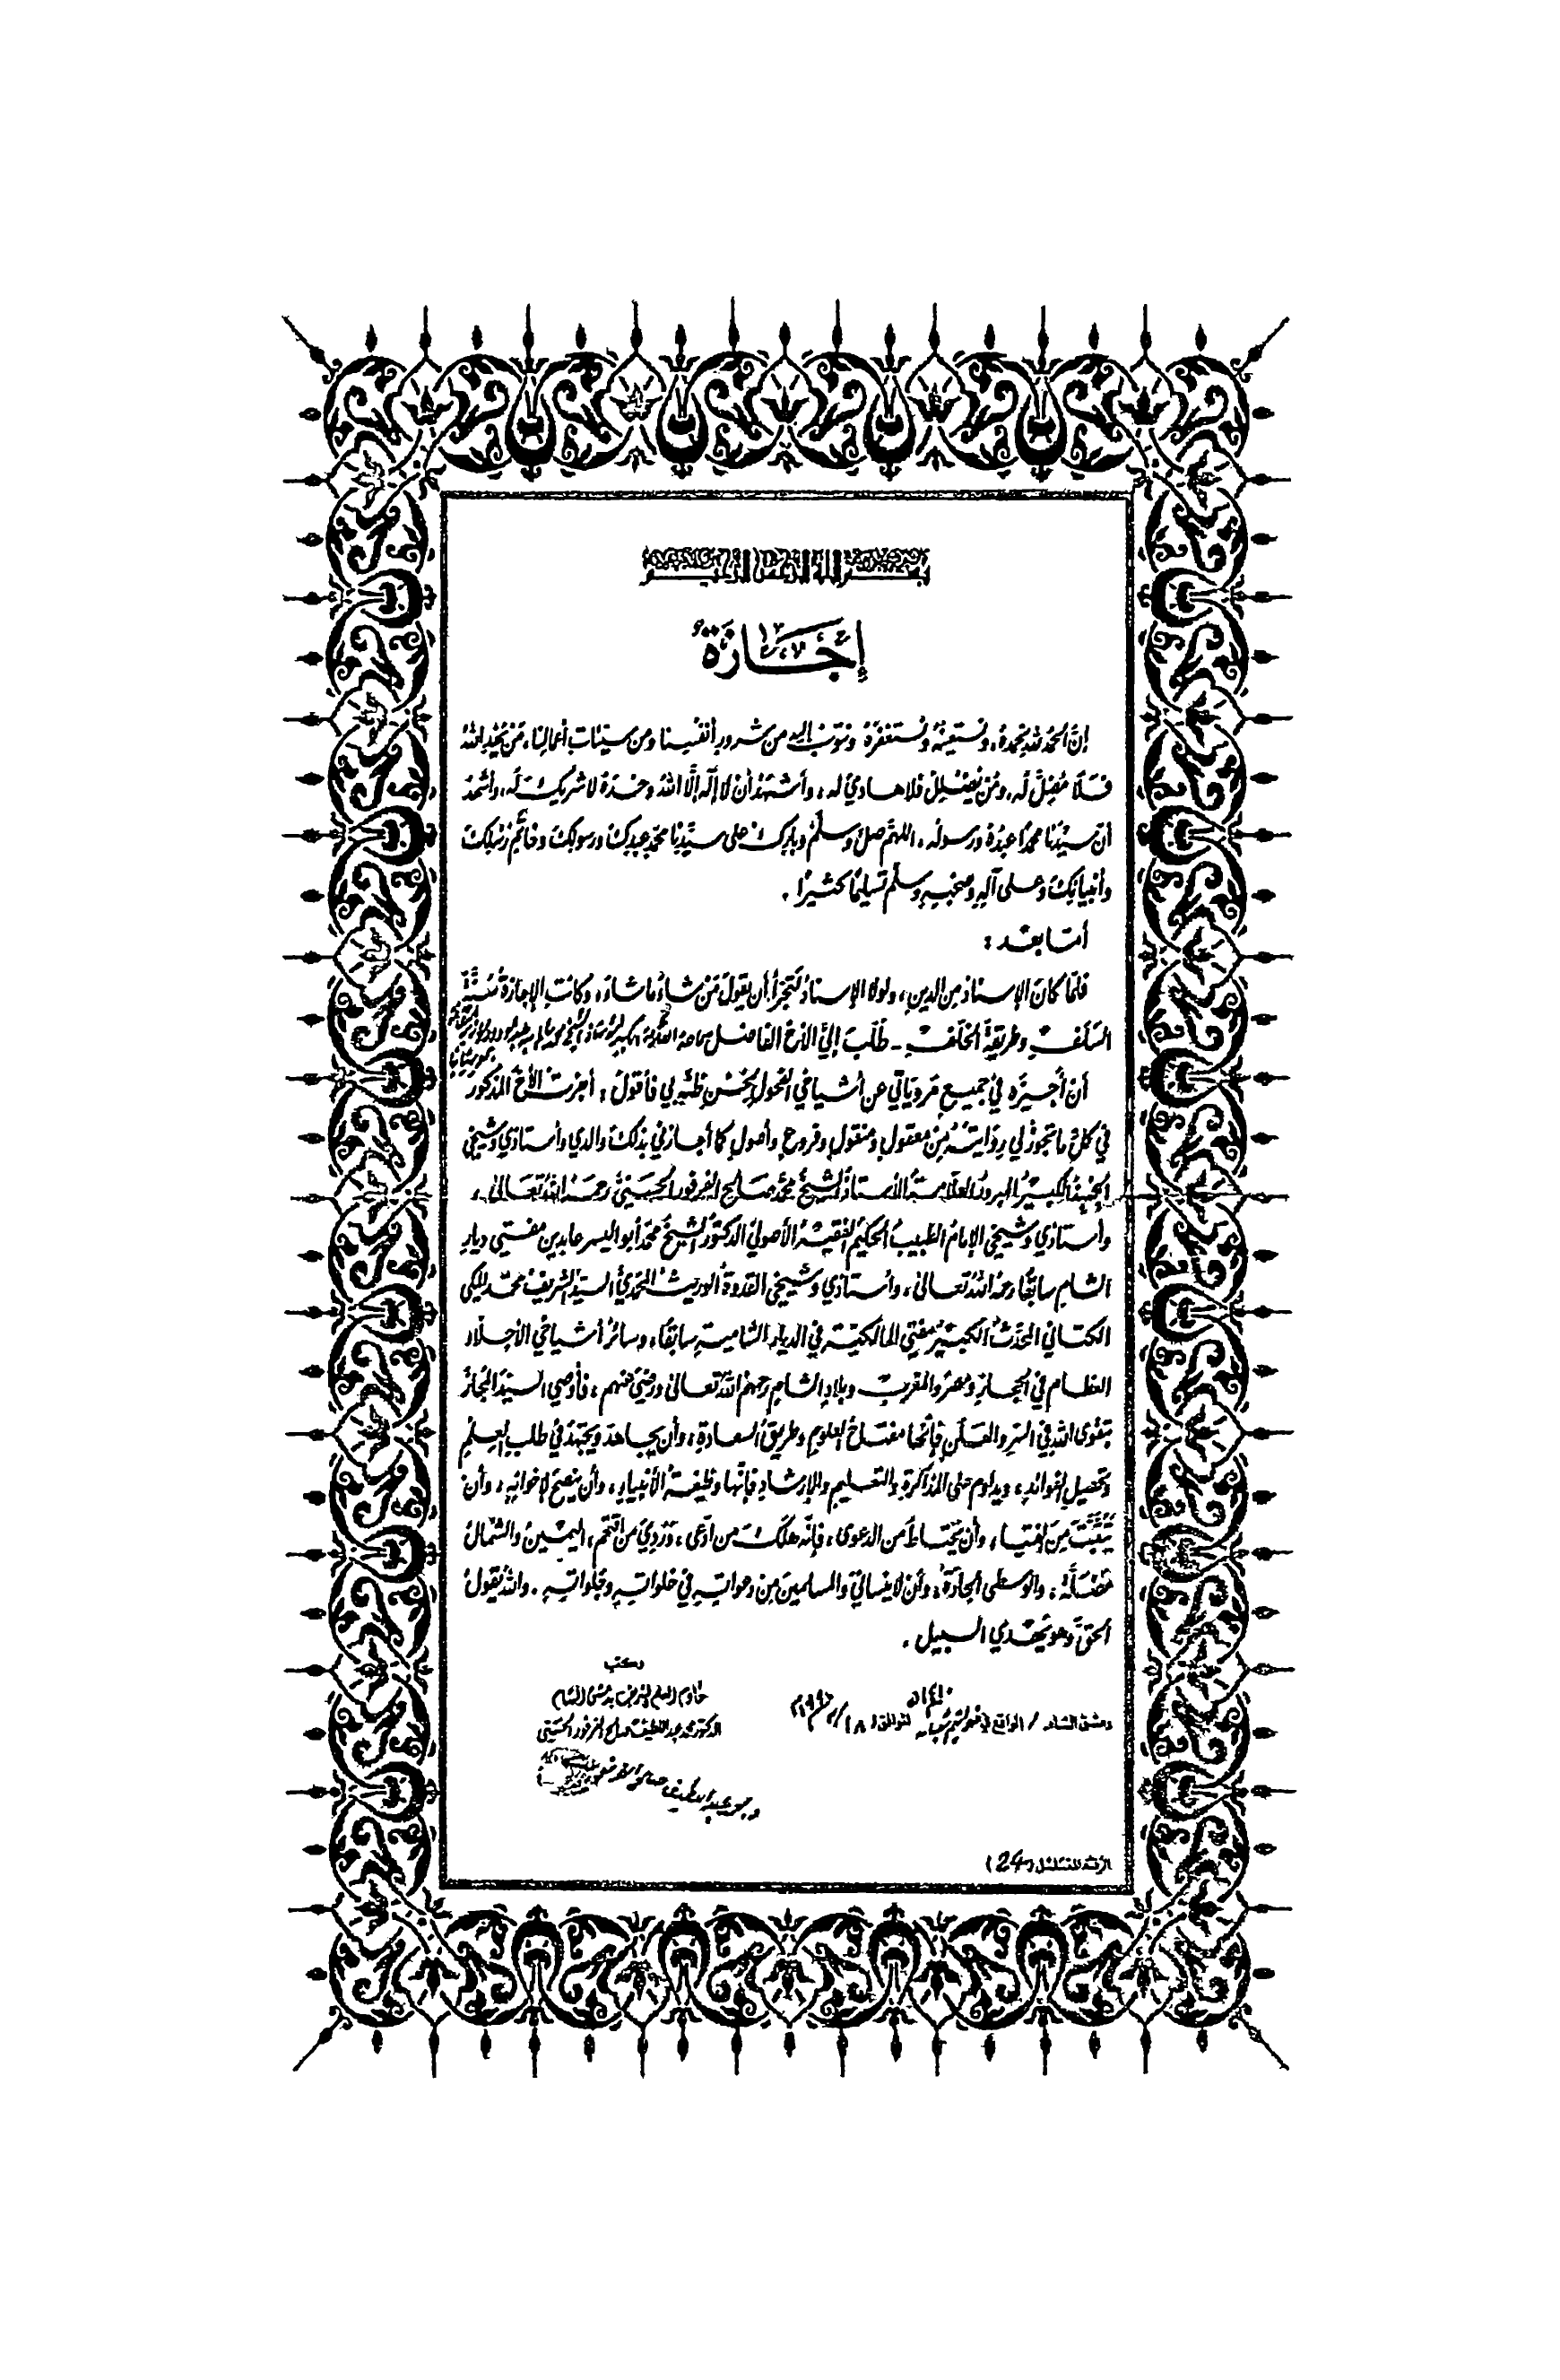 بسم الله الرحمن الرحيم
إجَازَةٌ
إنَّ الحمدَ للهِ نحمدُهُ، ونستعينُهُ ونستغفرُهُ ونتوبُ إليه من شرورِ أنفُسِنا ومن سيئاتِ أعمالِنا، مَنْ يَهْدِ اللهُ
فَلَا مُضِلَّ لَه، ومَنْ يُضْلِلْ فلا هاديَ له، وأشهَدُ أن لا إلَه إلَّا اللهُ وحْدَهُ لا شريكَ لَه، وأشهدُ
أنَّ سيِّدَنا محمدًا عبدُهُ ورسولُه، اللهمَّ صلِّ وسلِّمْ وباركْ على سيِّدِنا محمَّدٍ عبدِكَ ورسولِكَ وخاتَمِ رُسُلِكَ
وأنبيائِكَ وعلى آلِهِ وصَحْبِهِ وسلِّم تسليمًا كثيرًا .
أمَّا بعْد :
فلمّا كانَ الإسنادُ من الدينِ، ولولا الإسنادُ لتجرَّأَ أن يقولَ مَنْ شاءَ ما شاءَ، وكانتِ الإجازةُ سُنَّةَ
السَّلَفِ وطريقةَ الخَلَفِ - طَلَبَ إليَّ الأخُ الفاضل سماحة العلامة الكبير الأستاذ الشيخ محمد
أن أُجيزَه في جميعِ مَرويّاتي عن أشياخي الفُحولِ لِحُسْنِ ظنِّهِ بي فأقولُ : أجزتُ الأخَ المذكور
في كلِّ ما تجوزُ لي روايتُهُ مِنْ معقولٍ ومنقولٍ وفروعٍ وأصولٍ كما أجازني بذلكَ والدي وأستاذي وشيخي
الجِهْبِذُ الكبيرُ المبرورُ العلّامةُ الأستاذُ الشيخُ محمَّد صَالح الفرفور الحَسَنيُّ رحمهُ اللهُ تعَالى،
وأستاذي وشيخي الإمامُ الطبيبُ الحكيمُ الفقيهُ الأصوليُّ الدكتورُ الشيخُ محمَّد أبو اليسر عابدين مفتي ديارِ
الشامِ سابقًا رحمهُ اللهُ تعالى، وأستاذي وشيخي القدوةُ الوريثُ المحمديُّ السيّدُ الشريفُ محمّد المكي
الكتاني المحدّثُ الكبيرُ مفتي المالكيّةِ في الديارِ الشاميّةِ سابقًا، وسائرُ أشياخي الأجلّاءِ
العظام في الحجازِ ومصرَ والمغربِ وبلادِ الشامِ رحمهمُ اللهُ تعالى ورضيَ عنهم، فأُوصي السيدَ المُجازَ
بتقوى اللهِ في السرِّ والعلَنِ فإنَّها مفتاحُ العلومِ وطريقُ السعادةِ، وأن يجاهدَ ويجتهدَ في طلبِ العِلْمِ
وتحصيلِ الفوائدِ، ويداومَ على المذاكرةِ والتعليمِ والإرشادِ فإنَّها وظيفةُ الأنبياءِ، وأن ينصحَ لإخوانِه، وأن
يتثبّتَ مِنَ الفتيا، وأن يحتاطَ من الدعوى، فإنّه هلَكَ من ادّعى، ورَدِيَ من اقتحم، اليمينُ والشّمالُ
مَضَلَّةٌ، والوسطى الجادّةُ، وأن لا ينساني والمسلمينَ مِن دعواتِهِ في خلواتِهِ وجَلَواتِهِ. واللهُ يقولُ
الحقَّ وهو يَهْدي السبيل .
وكتب
خادم العلم الشريف بدمشق الشام
الدكتور محمد عبد اللطيف صالح الفرفور الحسني
دمشق الشام / الواقع في شعبان ١٤١٠ه الموافق ١٨/ / ١٩٩٠م
محمد عبد اللطيف صالح الفرفور
الرقم المتسلسل (24)